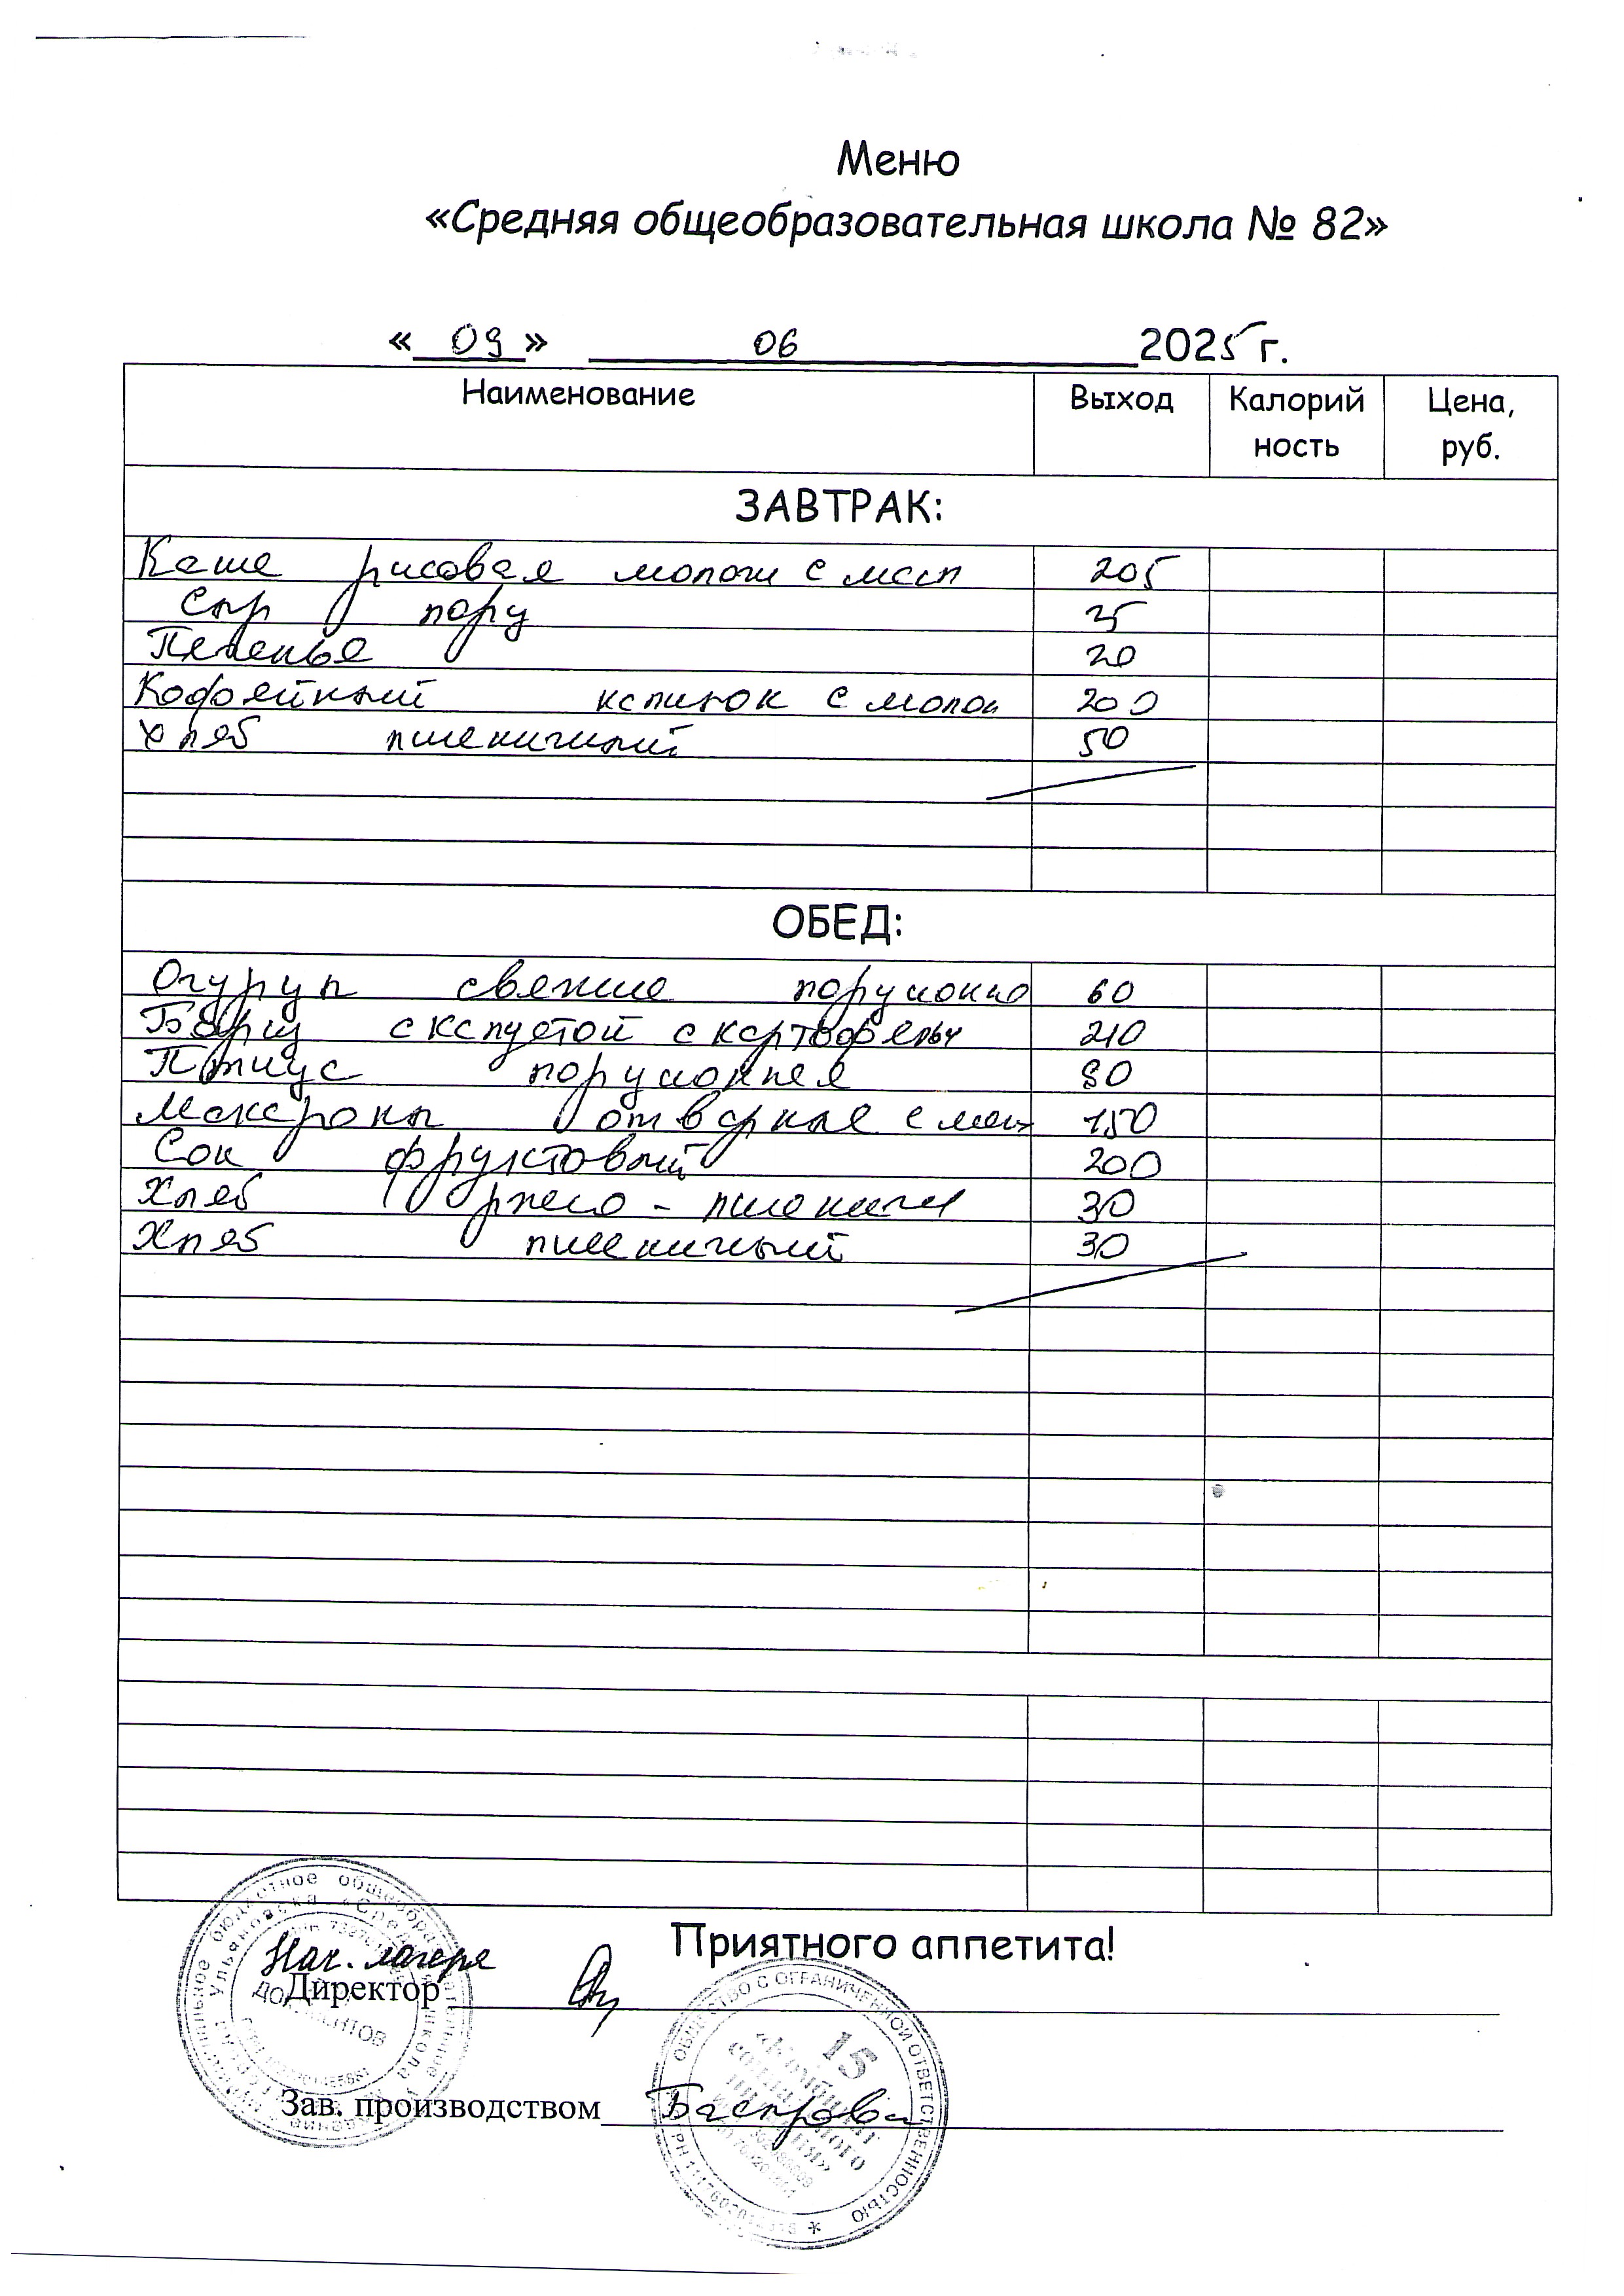 Меню
«Средняя общеобразовательная школа № 82»
« 09 » 06 2025 г.
Наименование Выход Калорий Цена,
ность руб.
ЗАВТРАК:
Каша рисовая молочн с масл 205
Сыр порц 25
Печенье 20
Кофейный напиток с молок 200
Хлеб пшеничный 50
ОБЕД:
Огурцы свежие порционно 60
Борщ с капустой с картофелем 210
Птица порционная 90
Макароны отварные с масл 150
Сок фруктовый 200
Хлеб ржано - пшеничн 30
Хлеб пшеничный 30
Приятного аппетита!
Нач. лагеря
Директор
Зав. производством
ОБЩЕСТВО С ОГРАНИЧЕННОЙ ОТВЕТСТВЕННОСТЬЮ
15
«Комбинат
социального
питания»